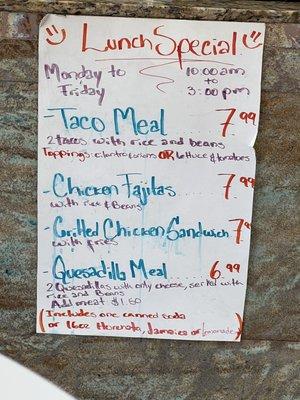 Lunch Special
Monday to 10:00am
to
Friday 3:00pm
-Taco Meal ... 7.99
2 tacos with rice and beans
Toppings: cilantro & onions OR lettuce & tomatoes
-Chicken Fajitas ... 7.99
with rice & Beans
-Grilled Chicken Sandwich 7.99
with fries
-Quesadilla Meal ... 6.99
2 Quesadillas with only cheese, served with
rice and Beans
Add meat $1.50
(Includes one canned soda
or 16oz Horchata, Jamaica or lemonade)